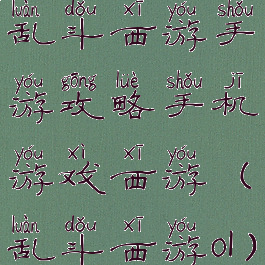 luàn dǒu xī yóu shǒu
乱斗西游手
yóu gōng lüè shǒu jī
游攻略手机
yóu xì xī yóu
游戏西游（
luàn dǒu xī yóu
乱斗西游01）